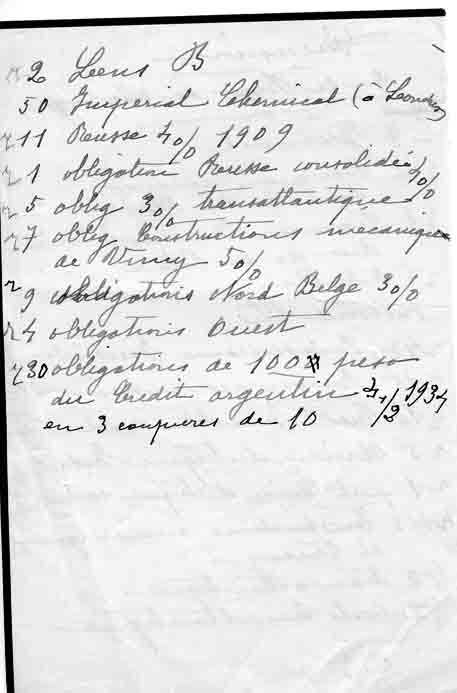 2 Lens B
50 Imperial Chemical (à Londres)
11 Russe 4 % 1909
1 obligation Russe consolidée 4 %
5 oblig 3 % transatlantique
7 oblig Constructions mecanique
de Vimy 5 %
9 obligations Nord Belge 3 %
4 obligations Ouest
30 obligations de 100 peso
du Credit argentin 4 1/2 1934
en 3 coupures de 10